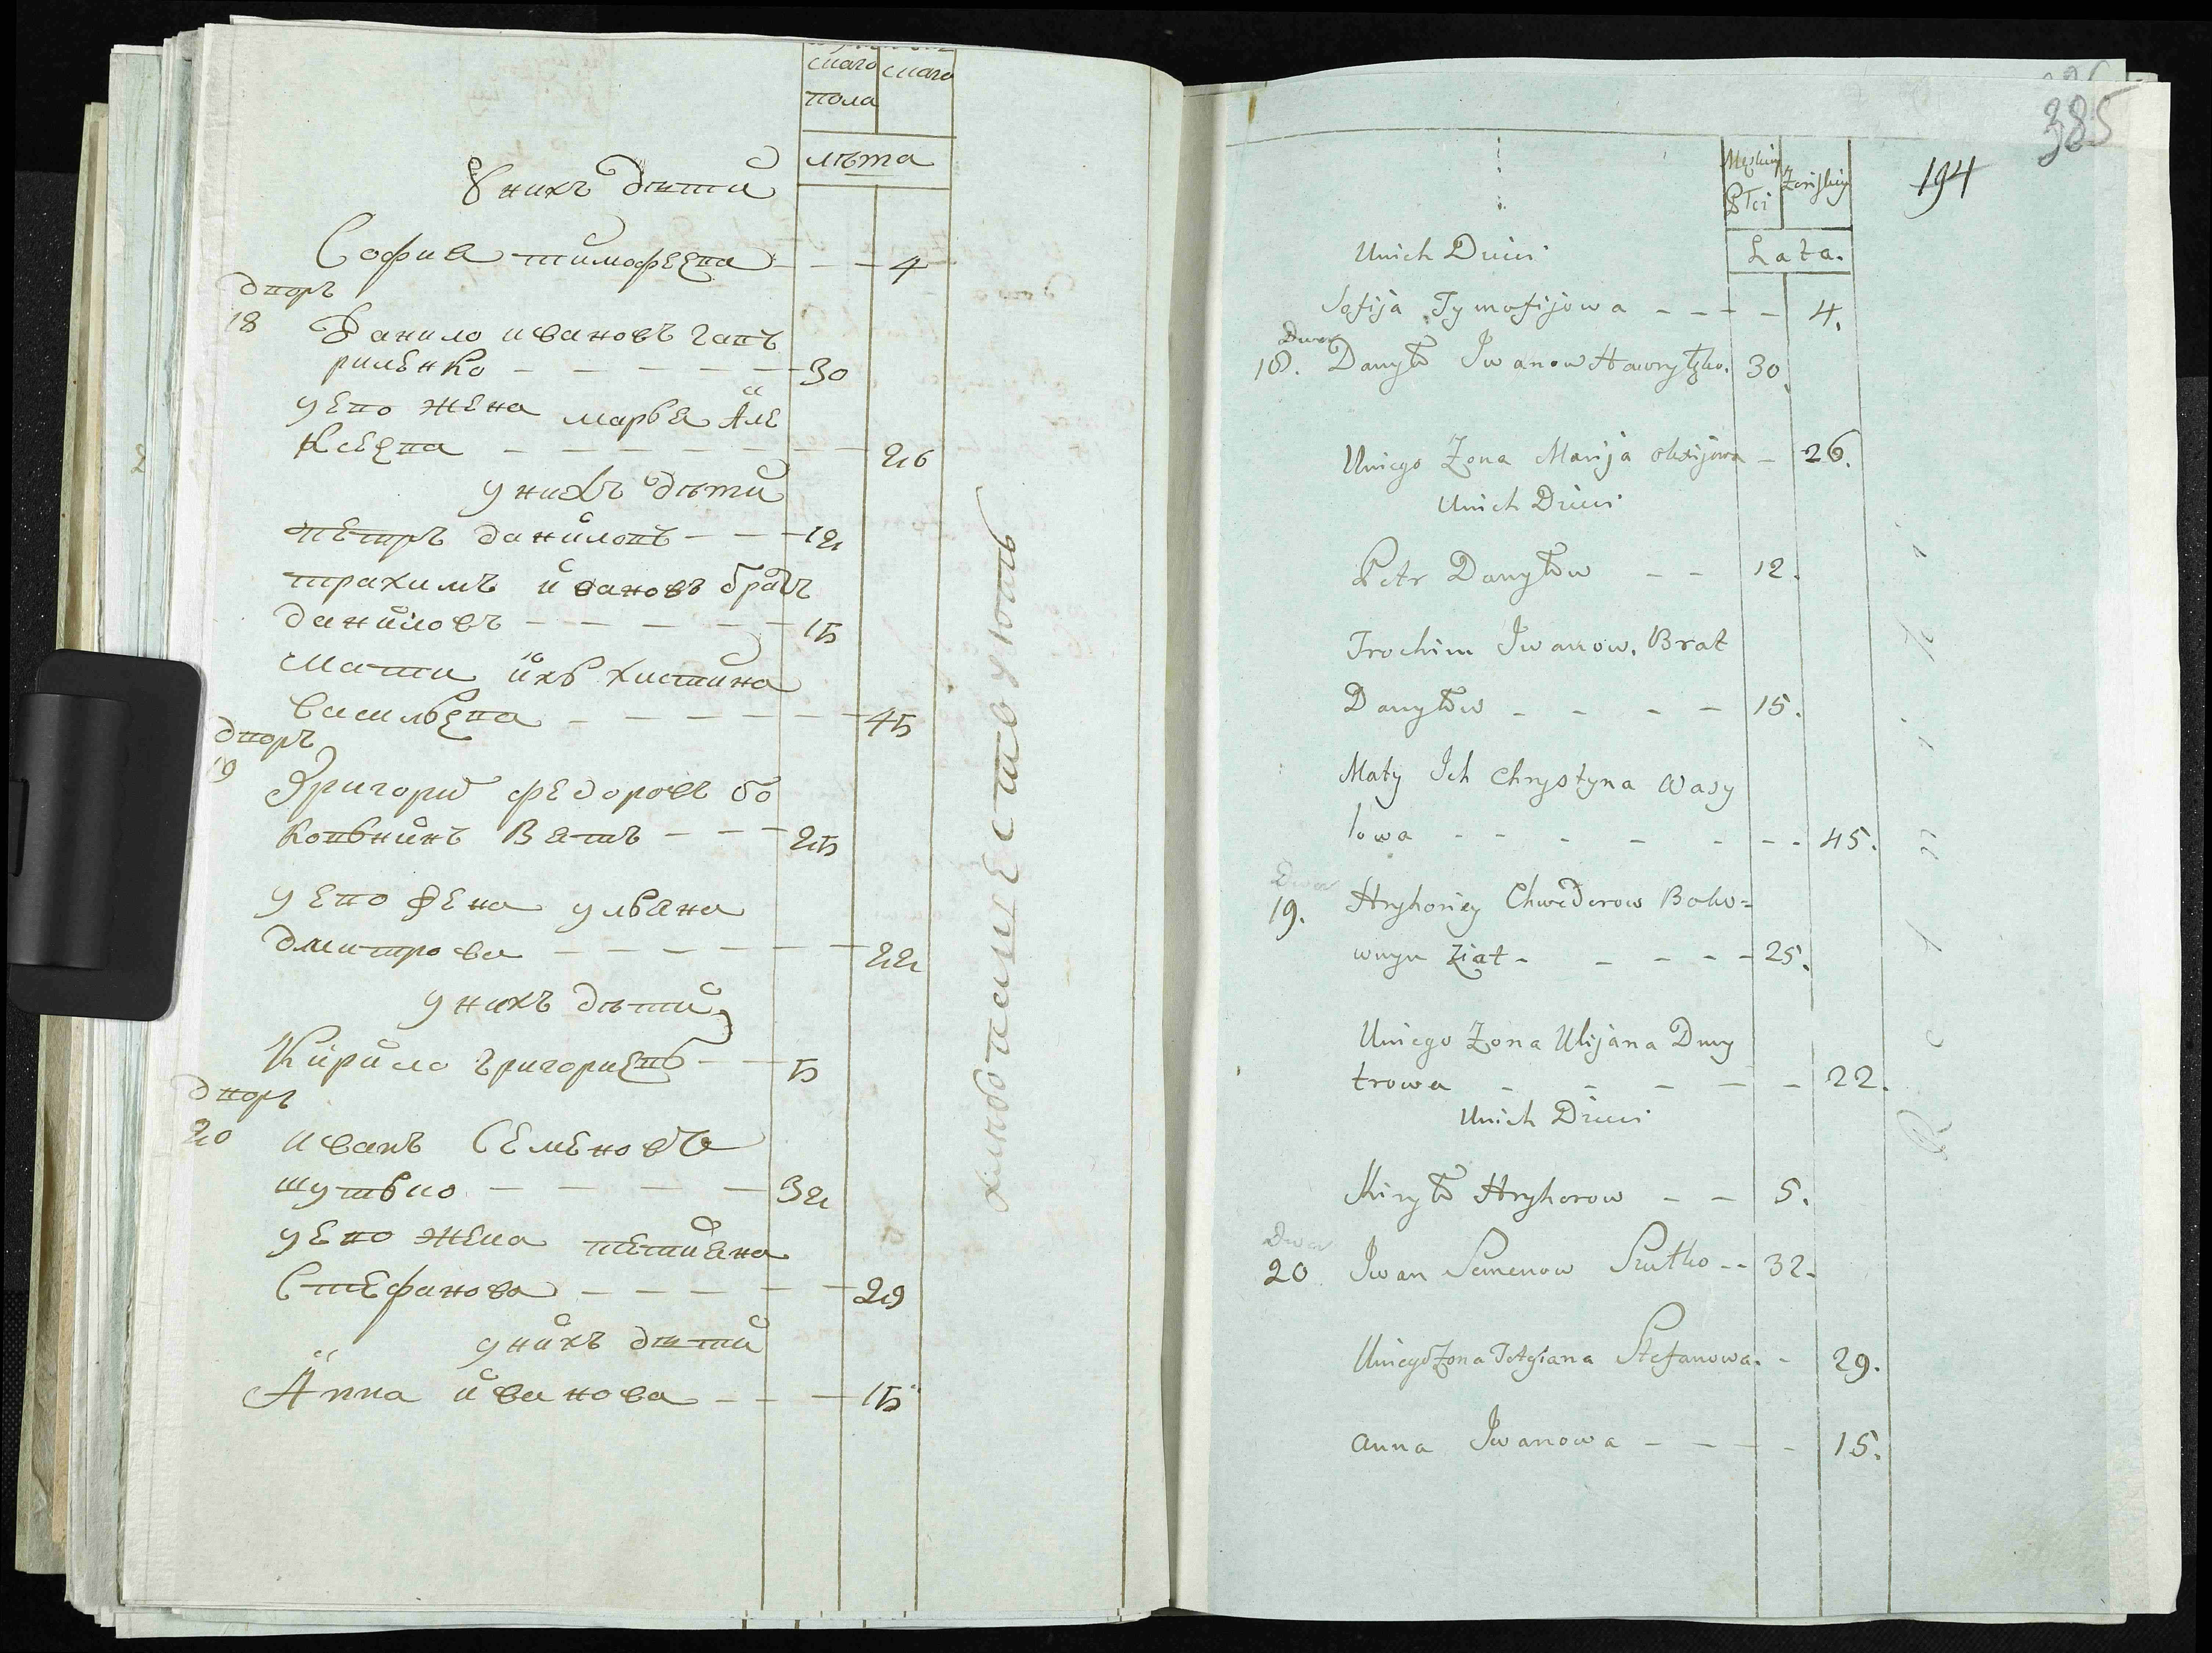 скаго скаго
пола
лѣта
У нихъ дѣти
София тимофеева - - - 4
дворъ
18 Данило ивановъ гав
риленко - - - - - - 30
у его жена марья Але
ксеева - - - - - - - 26
у нихъ дѣти
петръ даниловъ - - - 12
трахимъ ивановъ братъ
даниловъ - - - - - - 15
мати ихъ хистина
васильева - - - - - - 45
дворъ
19 Григорий федоровъ бо
ковнинъ зять - - - 25
у его жена ульяна
дмитрова - - - - - - 22
у нихъ дѣти
Кирило григориевъ - - 5
дворъ
20 иванъ Семеновъ
шутько - - - - - 32
у его жена татияна
Стефанова - - - - - 29
у нихъ дѣти
Анна иванова - - - 15
385
194
Męskiey Żeńskiey
Płci
Lata.
Unich Dzieci
Sofija Tymofijowa - - - - 4.
Dwor
18. Danyło Iwanow Hawryłko. 30.
Uniego Zona Marija Olexijowa - 26.
Unich Dzieci
Petr Danyłow - - 12.
Trochim Iwanow. Brat
Danyłow - - - - 15.
Maty Ich Chrystyna Wasy
lowa - - - - - - 45.
Dwor
19. Hryhoriey Chwedorow Boko=
wnyn Ziat - - - - - 25.
Uniego Zona Ulijana Dmy
trowa - - - - - 22.
Unich Dzieci
Kiryło Hryhorow - - 5.
Dwor
20 Iwan Semenow Szutko - - 32.
Uniego Zona Tetyiana Stefanowa. - 29.
Anna Iwanowa - - - - 15.